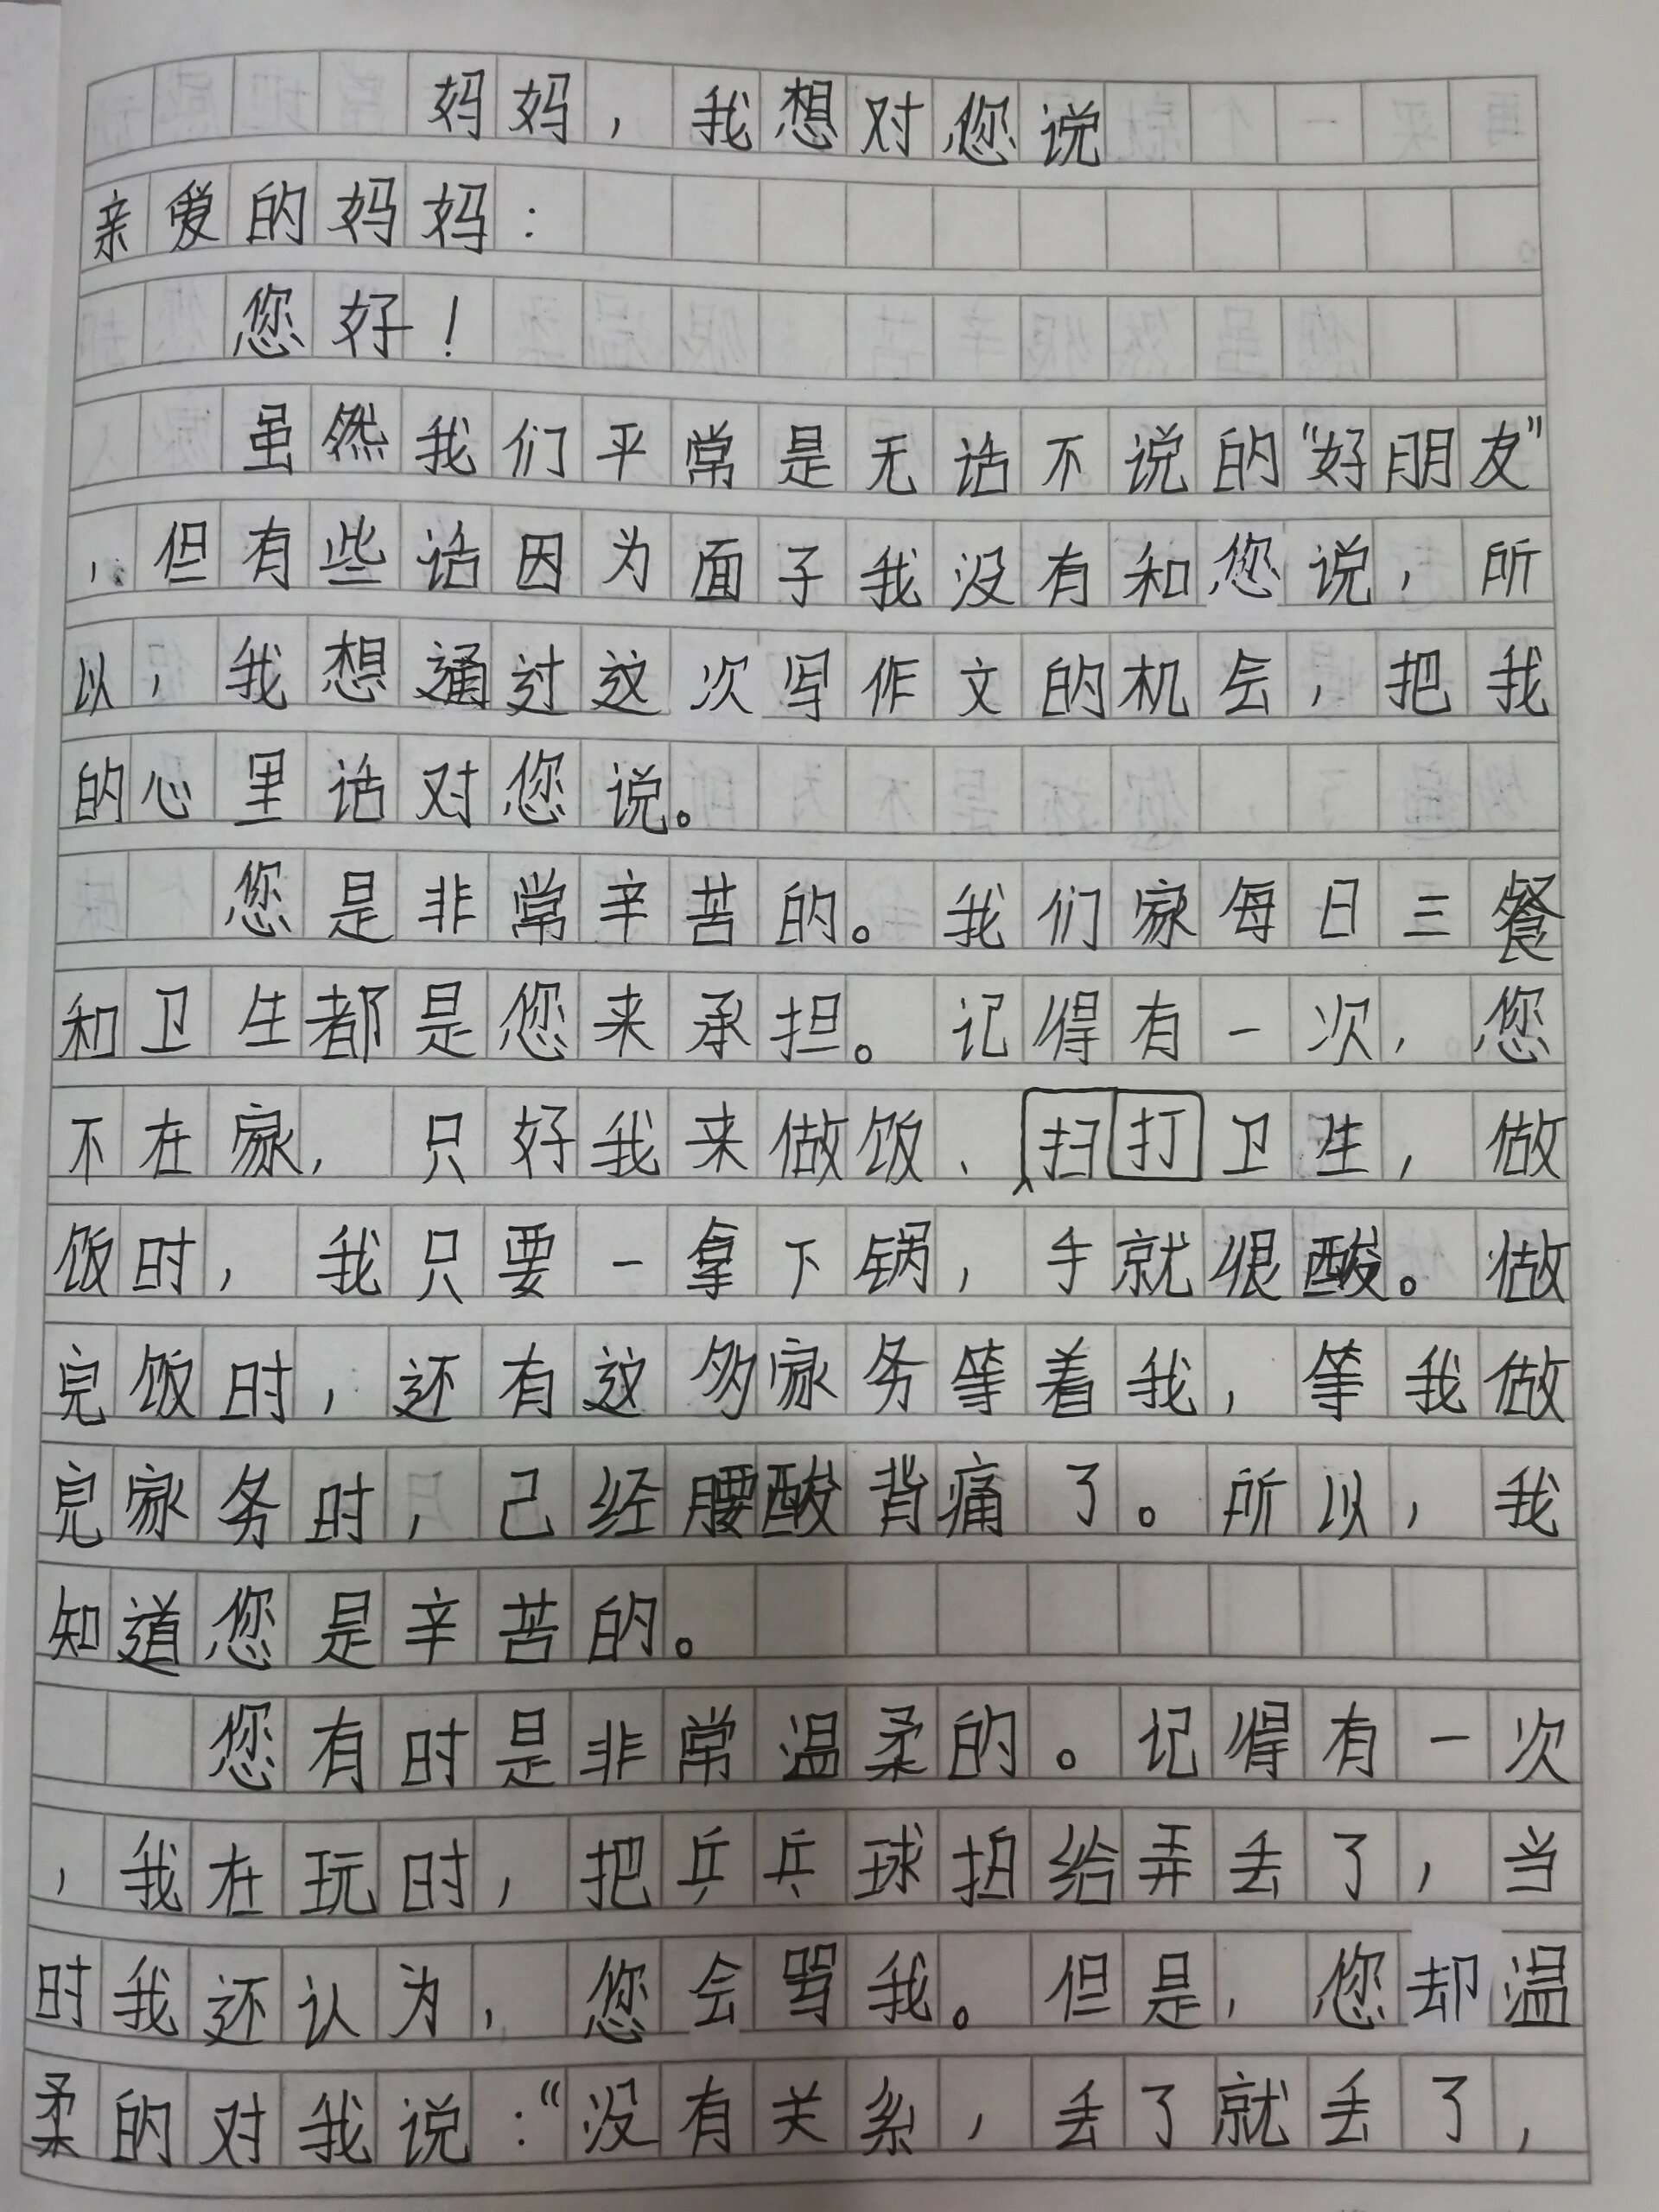 妈妈，我想对您说
亲爱的妈妈：
您好！
虽然我们平常是无话不说的“好朋友”
，但有些话因为面子我没有和您说，所
以，我想通过这次写作文的机会，把我
的心里话对您说。
您是非常辛苦的。我们家每日三餐
和卫生都是您来承担。记得有一次，您
不在家，只好我来做饭、扫打卫生，做
饭时，我只要一拿下锅，手就很酸。做
完饭时，还有这多家务等着我，等我做
完家务时，己经腰酸背痛了。所以，我
知道您是辛苦的。
您有时是非常温柔的。记得有一次
，我在玩时，把乒乓球拍给弄丢了，当
时我还认为，您会骂我。但是，您却温
柔的对我说：“没有关系，丢了就丢了，